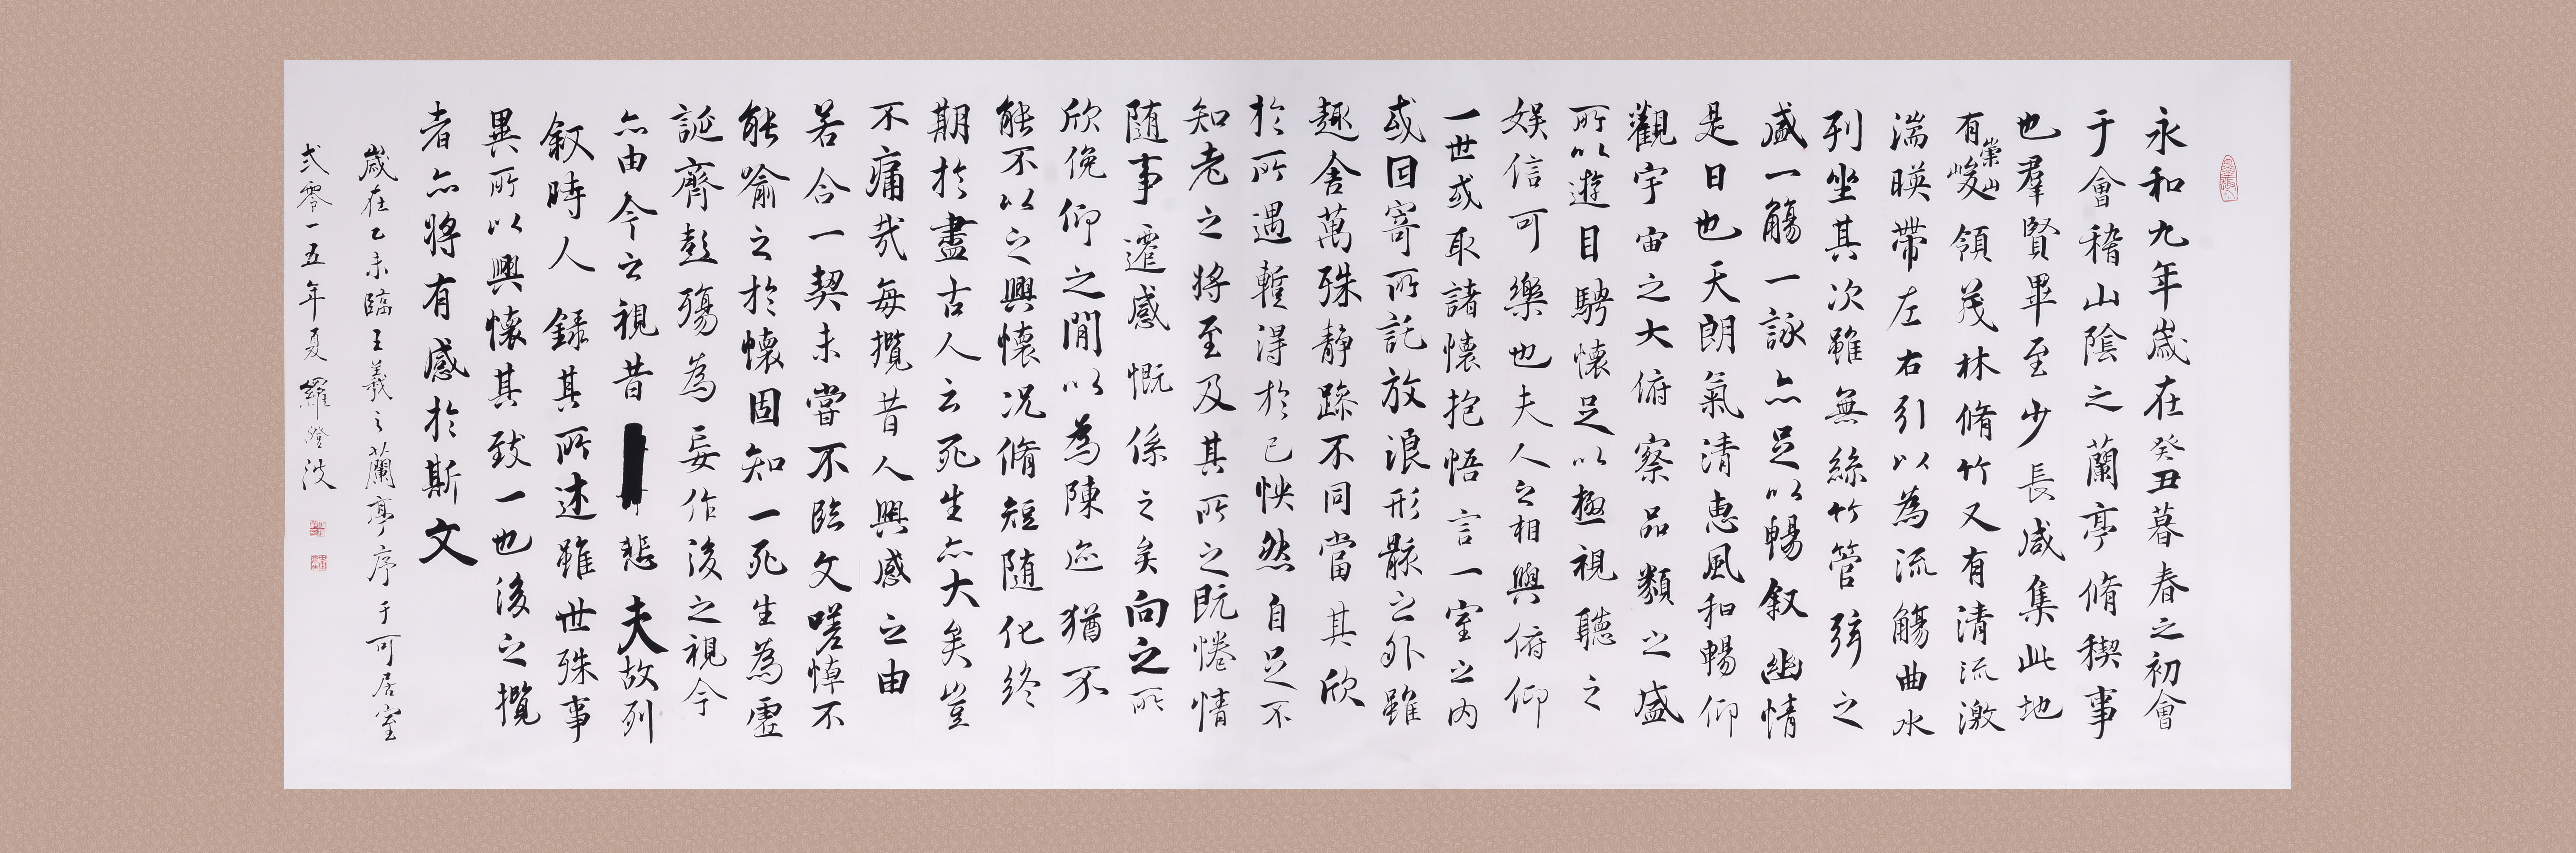 永和九年歲在癸丑暮春之初會
于會稽山陰之蘭亭脩稧事
也羣賢畢至少長咸集此地
有崇山峻領茂林脩竹又有清流激
湍暎帶左右引以為流觴曲水
列坐其次雖無絲竹管弦之
盛一觴一詠亦足以暢叙幽情
是日也天朗氣清惠風和暢仰
觀宇宙之大俯察品類之盛
所以遊目騁懷足以極視聽之
娛信可樂也夫人之相與俯仰
一世或取諸懷抱悟言一室之內
或因寄所託放浪形骸之外雖
趣舍萬殊靜躁不同當其欣
於所遇暫得於己怏然自足不
知老之將至及其所之既惓情
隨事遷感慨係之矣向之所
欣俛仰之閒以為陳迹猶不
能不以之興懷況脩短隨化終
期於盡古人云死生亦大矣豈
不痛哉每攬昔人興感之由
若合一契未嘗不臨文嗟悼不
能喻之於懷固知一死生為虛
誕齊彭殤為妄作後之視今
亦由今之視昔悲夫故列
叙時人錄其所述雖世殊事
異所以興懷其致一也後之攬
者亦將有感於斯文
歲在乙未臨王羲之蘭亭序于可居室
弍零一五年夏羅澄波